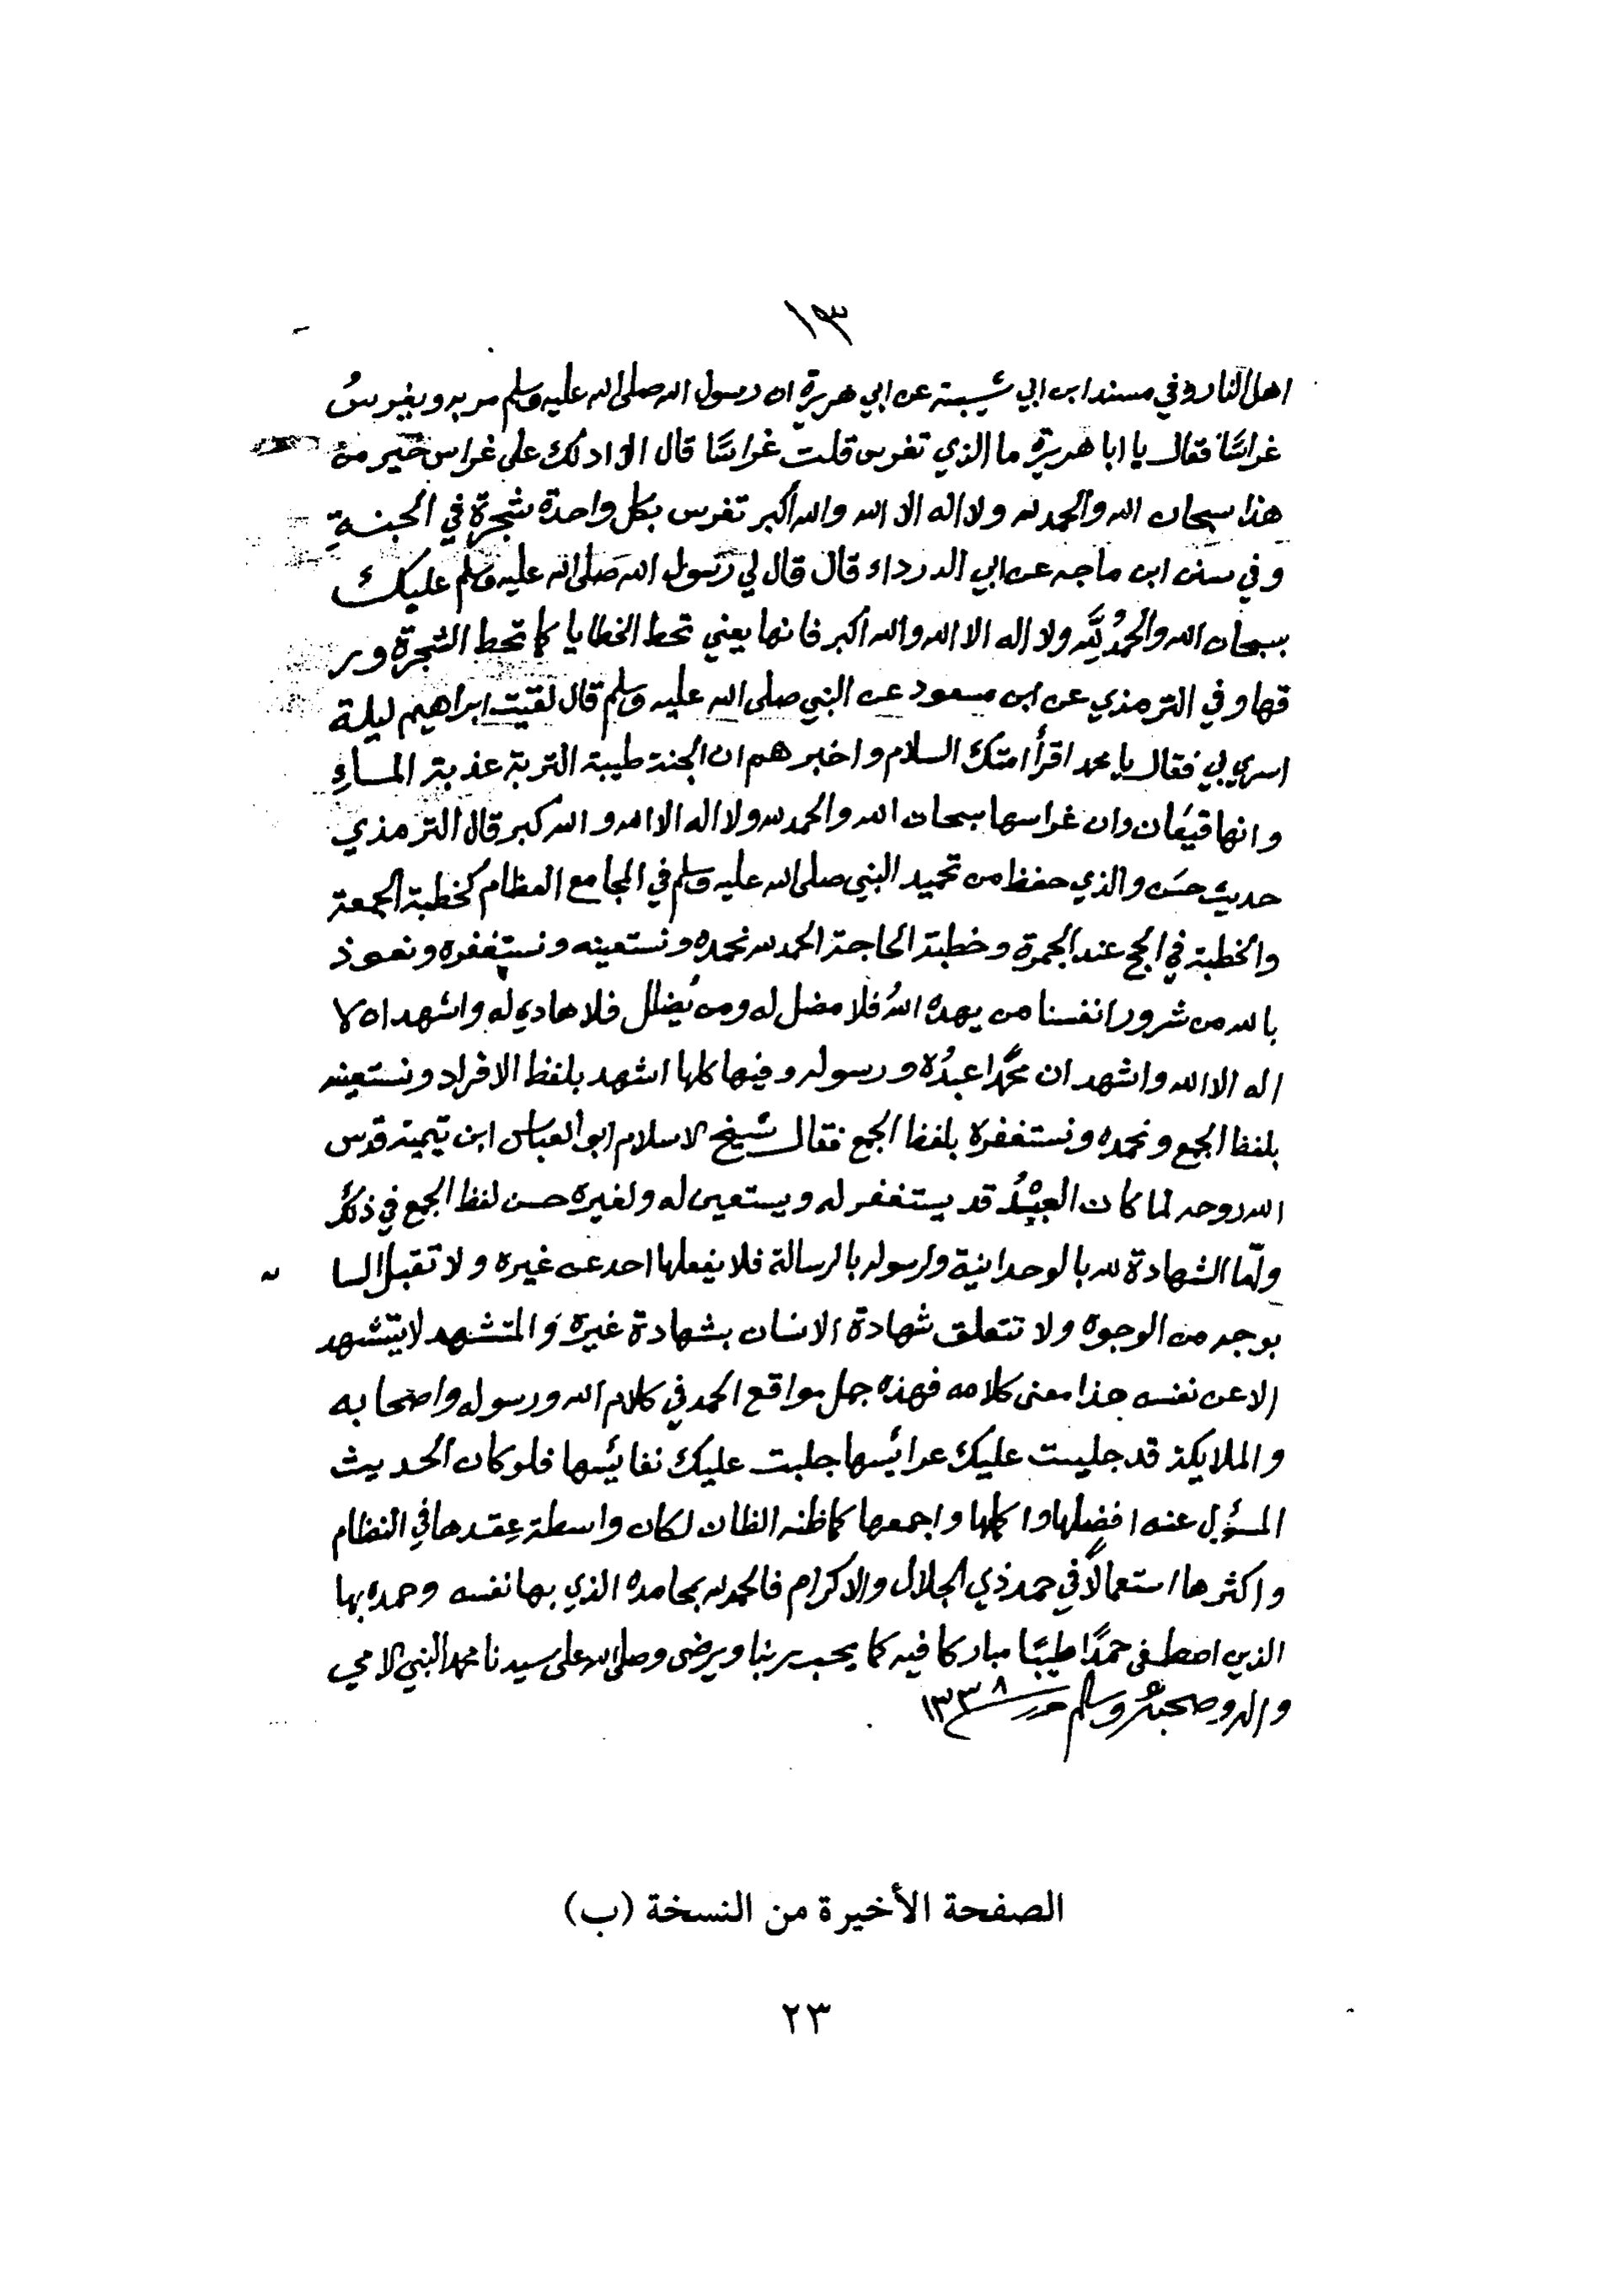 ١٣
اهل النار وفي مسند ابن ابي شيبة عن ابي هريرة ان رسول الله صلى الله عليه وسلم مر به ويغرسُ
غراسًا فقال يا ابا هريرة ما الذي تغرس قلت غراسًا قال الا ادلك على غراس خير من
هذا سبحان الله والحمد لله ولا اله الا الله والله أكبر تغرس بكل واحدة شجرة في الجنةِ
وفي سنن ابن ماجه عن ابي الدرداء قال قال لي رسول الله صلى الله عليه وسلم عليك
بسبحان الله والحمدُ لله ولا اله الا الله والله اكبر فانها يعني تحط الخطايا كما تحط الشجرة ور
قها وفي الترمذي عن ابن مسعود عن النبي صلى الله عليه وسلم قال لقيت ابراهيم ليلة
اسري بي فقال يا محمد اقرأ امتك السلام واخبرهم ان الجنة طيبة التربة عذبة الماءِ
وانها قيعان وان غراسها سبحان الله والحمد لله ولا اله الا الله والله كبر قال الترمذي
حديث حسَن والذي حفظ من تحميد النبي صلى الله عليه وسلم في المجامع العظام كخطبة الجمعة
والخطبة في الحج عند الجمرة وخطبة الحاجة الحمد لله نحمده ونستعينه ونستغفره ونعوذ
بالله من شرور انفسنا من يهده اللهُ فلا مضل له ومن يُضلل فلا هادي له واشهد ان لا
اله الا الله واشهد ان محمدًا عبدُه ورسوله وفيها كلها اشهد بلفظ الافراد ونستعينه
بلفظ الجمع ونحمده ونستغفره بلفظ الجمع فقال شيخ الاسلام ابو العباس ابن تيمية قدس
الله روحه لما كان العبْدُ قد يستغفر له ويستعين له ولغيره حسن لفظ الجمع في ذلك
ولمّا الشهادة لله بالوحدانية ولرسوله بالرسالة فلا يفعلها احد عن غيره ولا تقبل
بوجه من الوجوه ولا تتعلق شهادة الانسان بشهادة غيره والمتشهد لا يتشهد
الا عن نفسه هذا معنى كلامه فهذه جمل مواقع الحمد في كلام الله ورسوله واصحابه
والملايكة قد جليت عليك عرائسها جلبت عليك نفائسها فلو كان الحديث
المسؤل عنه افضلها واكملها واجمعها كما ظنه الظان لكان واسطة عِقدها في النظام
واكثرها استعمالاً في حمد ذي الجلال والاكرام فالحمد لله بمحامده الذي بها نفسه وحمده بها
الذين اصطفى حمدًا طيبًا مباركا فيه كما يحب ربنا ويرضى وصلى الله على سيدنا محمد النبي الامي
واله وصحبه وسلم ١٣٣٨
الصفحة الأخيرة من النسخة (ب)
٢٣